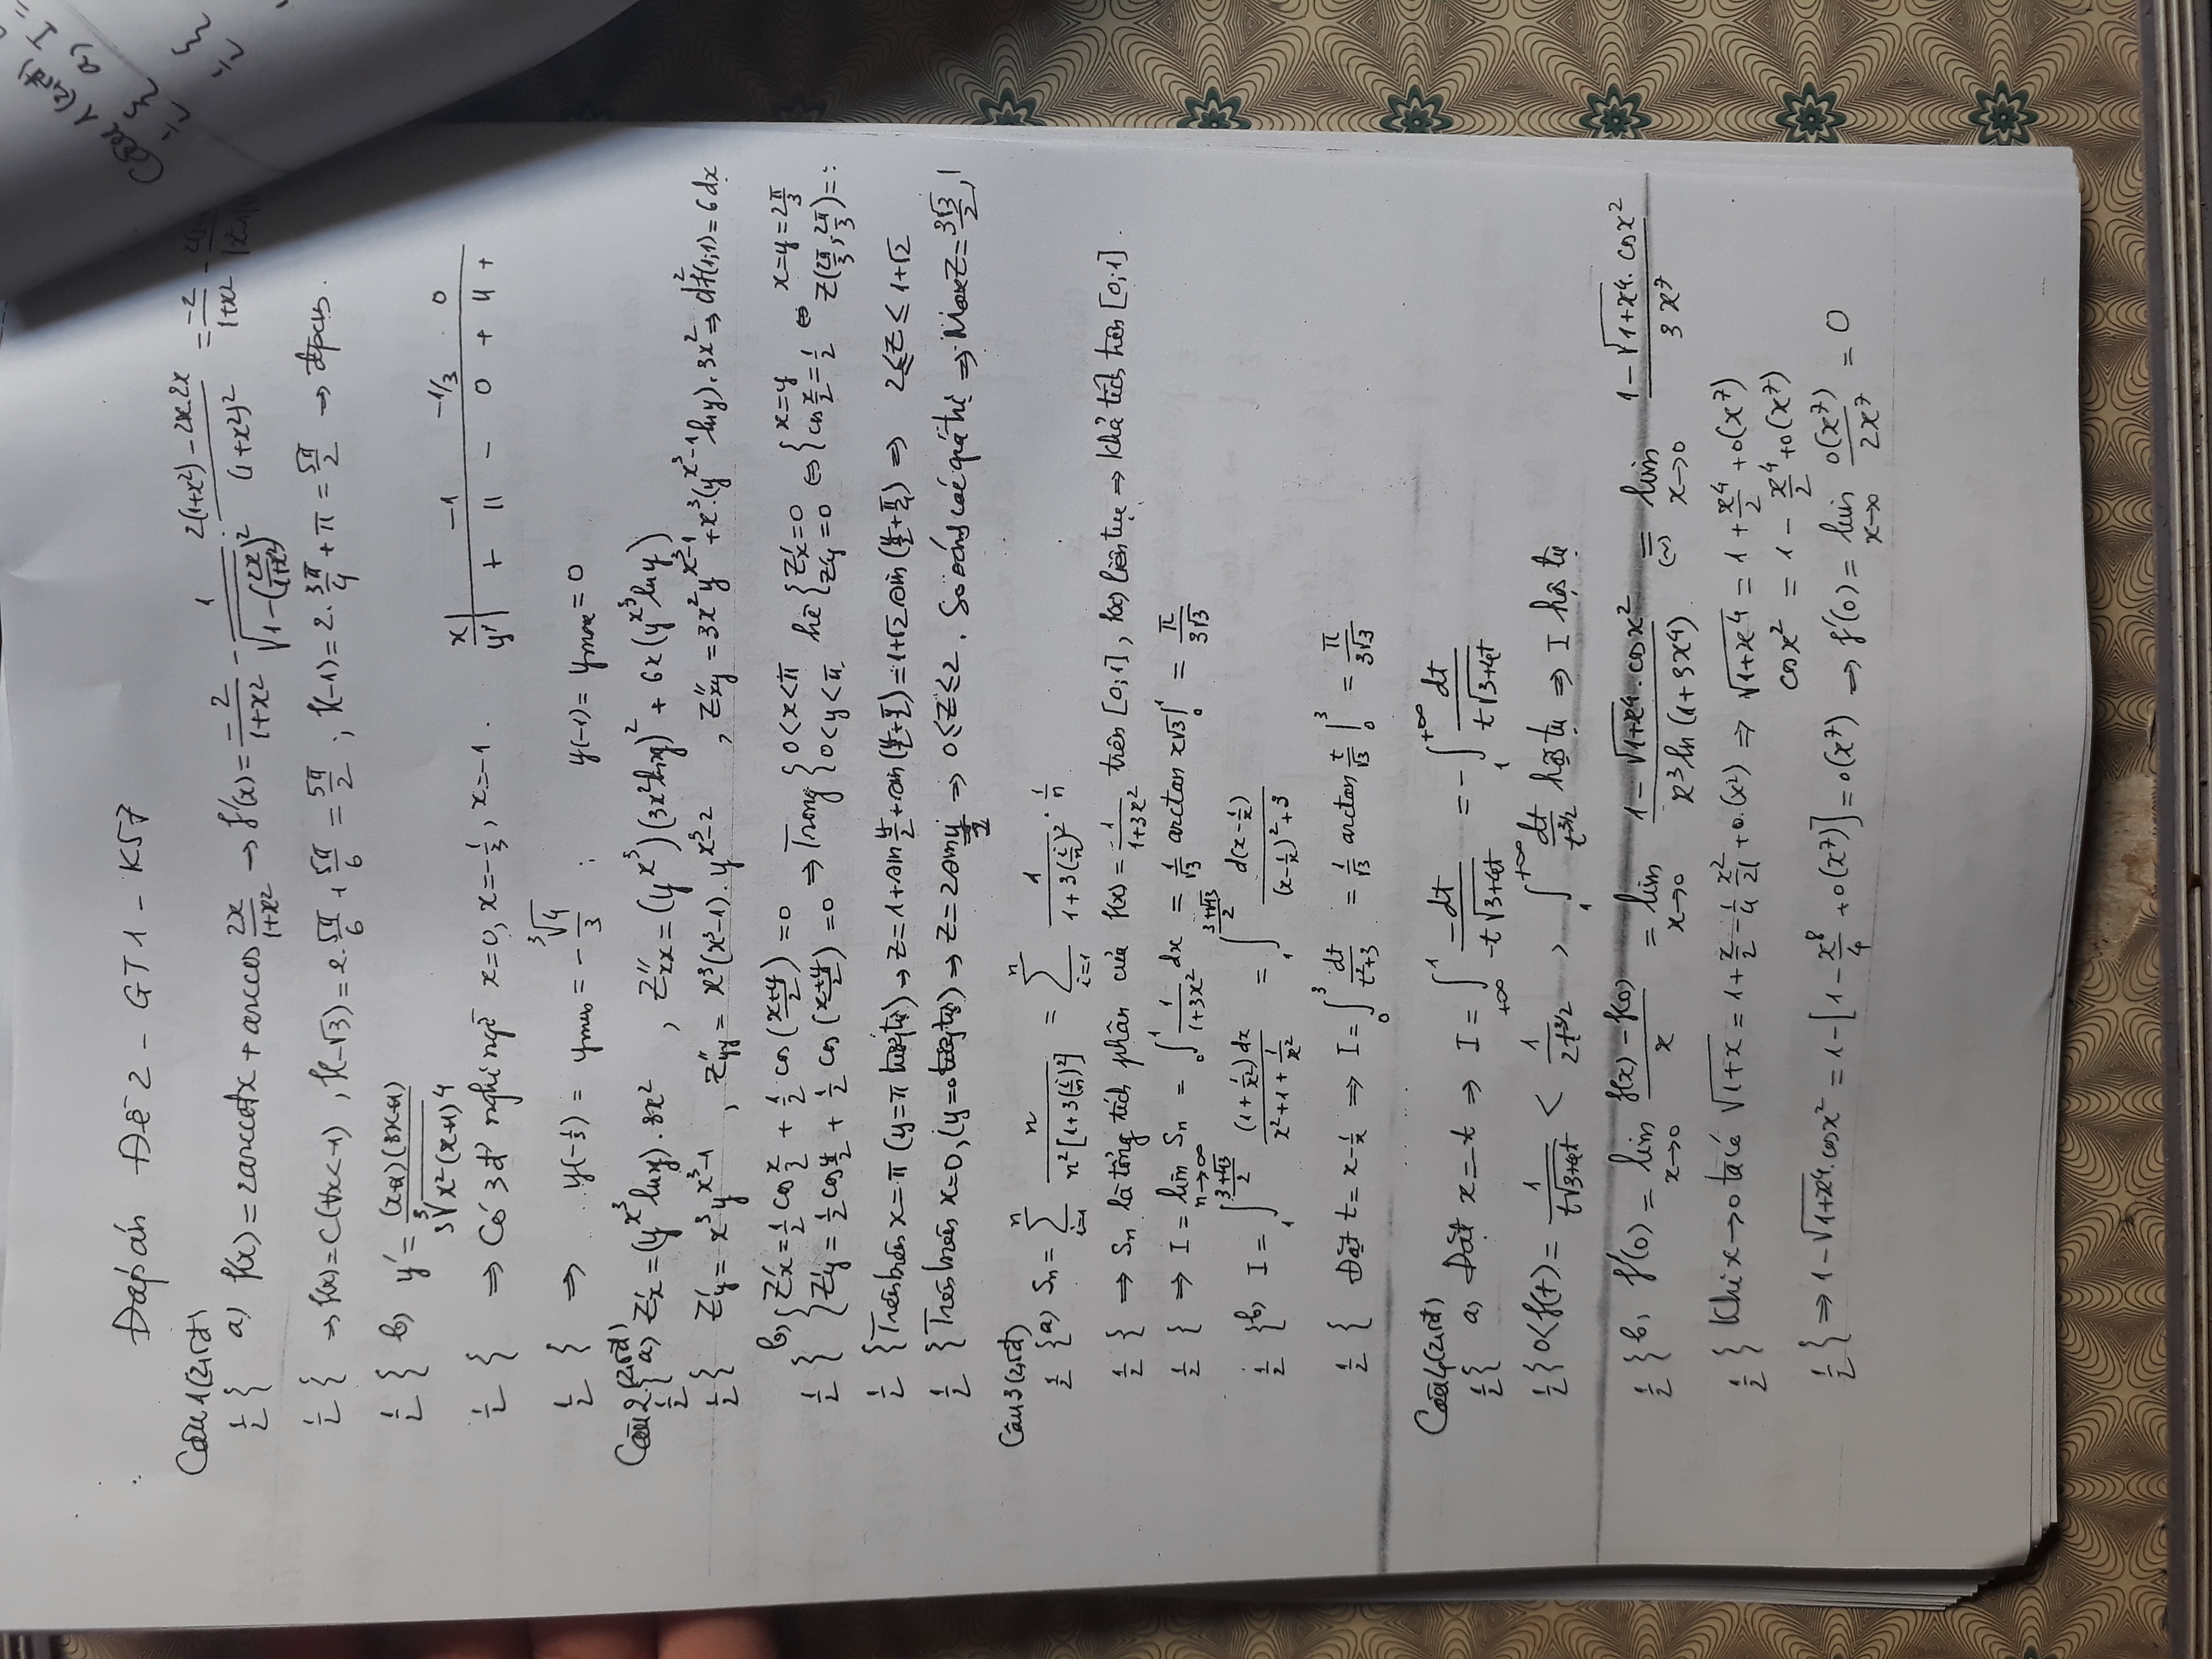 Đáp án Đề 2 - GT1 - K57
Câu 1 (2,5đ)
1/2 { a) f(x) = 2arccotx + arccos 2x/(1+x²) → f'(x) = -2/(1+x²) - 1/√(1-(2x/(1+x²))²) · (2(1+x²) - 2x.2x)/(1+x²)² = -2/(1+x²) -
1/2 { ⇒ f(x) = C (∀x < -1), f(-√3) = 2.5π/6 + 5π/6 = 5π/2 ; f(-1) = 2.3π/4 + π = 5π/2 → đpcm.
1/2 { b) y' = (x+1)(3x+1)/(3∛(x²(x+1)⁴))
x | -1 -1/3 0
1/2 { ⇒ Có 3 đ' nghi ngờ x=0, x=-1/3, x=-1.
y' | + || - 0 + || +
1/2 { ⇒ y(-1/3) = ymin = -∛4/3 ; y(-1) = ymax = 0
Câu 2 (2,5đ)
1/2 { a) Z'x = (y^(x³) lny).3x² , Z''xx = (y^(x³))(3x²lny)² + 6x(y^(x³) lny)
1/2 { Z'y = x³y^(x³-1) , Z''yy = x³(x³-1).y^(x³-2) , Z''xy = 3x²y^(x³-1) + x³.(y^(x³-1) lny).3x² ⇒ d²f(1;1) = 6dx
1/2 { b) { Z'x = 1/2 cos x/2 + 1/2 cos((x+y)/2) = 0
Z'y = 1/2 cos y/2 + 1/2 cos((x+y)/2) = 0 ⇒ Trong { 0<x<π 0<y<π. hệ { Z'x=0 Z'y=0 ⇔ { x=y cos x/2 = 1/2 ⇔ x=y=2π/3 Z(2π/3, 2π/3) =
1/2 { Trên biên x=π (y=π tương tự) → Z = 1 + sin y/2 + sin(y/2 + π/2) = 1+√2 sin(y/2 + π/4) ⇒ 2 ≤ Z ≤ 1+√2
1/2 { Trên biên x=0, (y=0 tương tự) ⇒ Z = 2sin y/2 ⇒ 0 ≤ Z ≤ 2. So sánh các giá trị ⇒ MaxZ = 3√3/2,
Câu 3 (2,5đ)
1/2 { a) Sn = Σ_{i=1}^{n} n/(n²[1+3(i/n)²]) = Σ_{i=1}^{n} 1/(1+3(i/n)²) · 1/n
1/2 { ⇒ Sn là tổng tích phân của f(x) = 1/(1+3x²) trên [0;1], f(x) liên tục ⇒ khả tích trên [0;1].
1/2 { ⇒ I = lim_{n→∞} Sn = ∫₀¹ 1/(1+3x²) dx = 1/√3 arctan x√3 |₀¹ = π/(3√3)
1/2 { b) I = ∫₁^((3+√13)/2) (1+1/x²)dx/(x²+1+1/x²) = ∫₁^((3+√13)/2) d(x-1/x)/((x-1/x)²+3)
1/2 { Đặt t = x-1/x ⇒ I = ∫₀³ dt/(t²+3) = 1/√3 arctan t/√3 |₀³ = π/(3√3)
Câu 4 (2,5đ)
1/2 { a) Đặt x=-t ⇒ I = ∫_{+∞}^{1} -dt/(-t√(3+4t)) = -∫₁^{+∞} dt/(t√(3+4t))
1/2 { 0<f(t) = 1/(t√(3+4t)) < 1/(2t^(3/2)) , ∫₁^{+∞} dt/t^(3/2) hội tụ ⇒ I hội tụ
1/2 { b) f'(0) = lim_{x→0} (f(x) - f(0))/x = lim_{x→0} (1-√(1+x⁴).cosx²)/(x³ln(1+3x⁴)) =(~) lim_{x→0} (1-√(1+x⁴).cosx²)/(3x⁷)
1/2 { Khi x→0 ta có √(1+x) = 1 + x/2 - 1/4 x²/2! + 0.(x²) ⇒ √(1+x⁴) = 1 + x⁴/2 + 0(x⁷)
cosx² = 1 - x⁴/2 + 0(x⁷)
1/2 { ⇒ 1-√(1+x⁴).cosx² = 1-[1 - x⁸/4 + 0(x⁷)] = 0(x⁷) ⇒ f'(0) = lim_{x→0} 0(x⁷)/(2x⁷) = 0
Câu 1 (2,5đ)
1/2 { a) I =
1/2 {